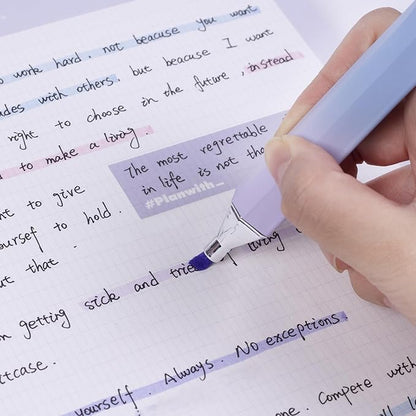 work hard, not beacuse you want
ades with others, but beacuse I want
right to choose in the future, instead
to make a living.
The most regrettable
in life is not tha
#Planwith_
nt to give
yourself to hold.
ut that.
m getting sick and trie of living
itcase.
yourself. Always. No exceptions.
one. Compete with